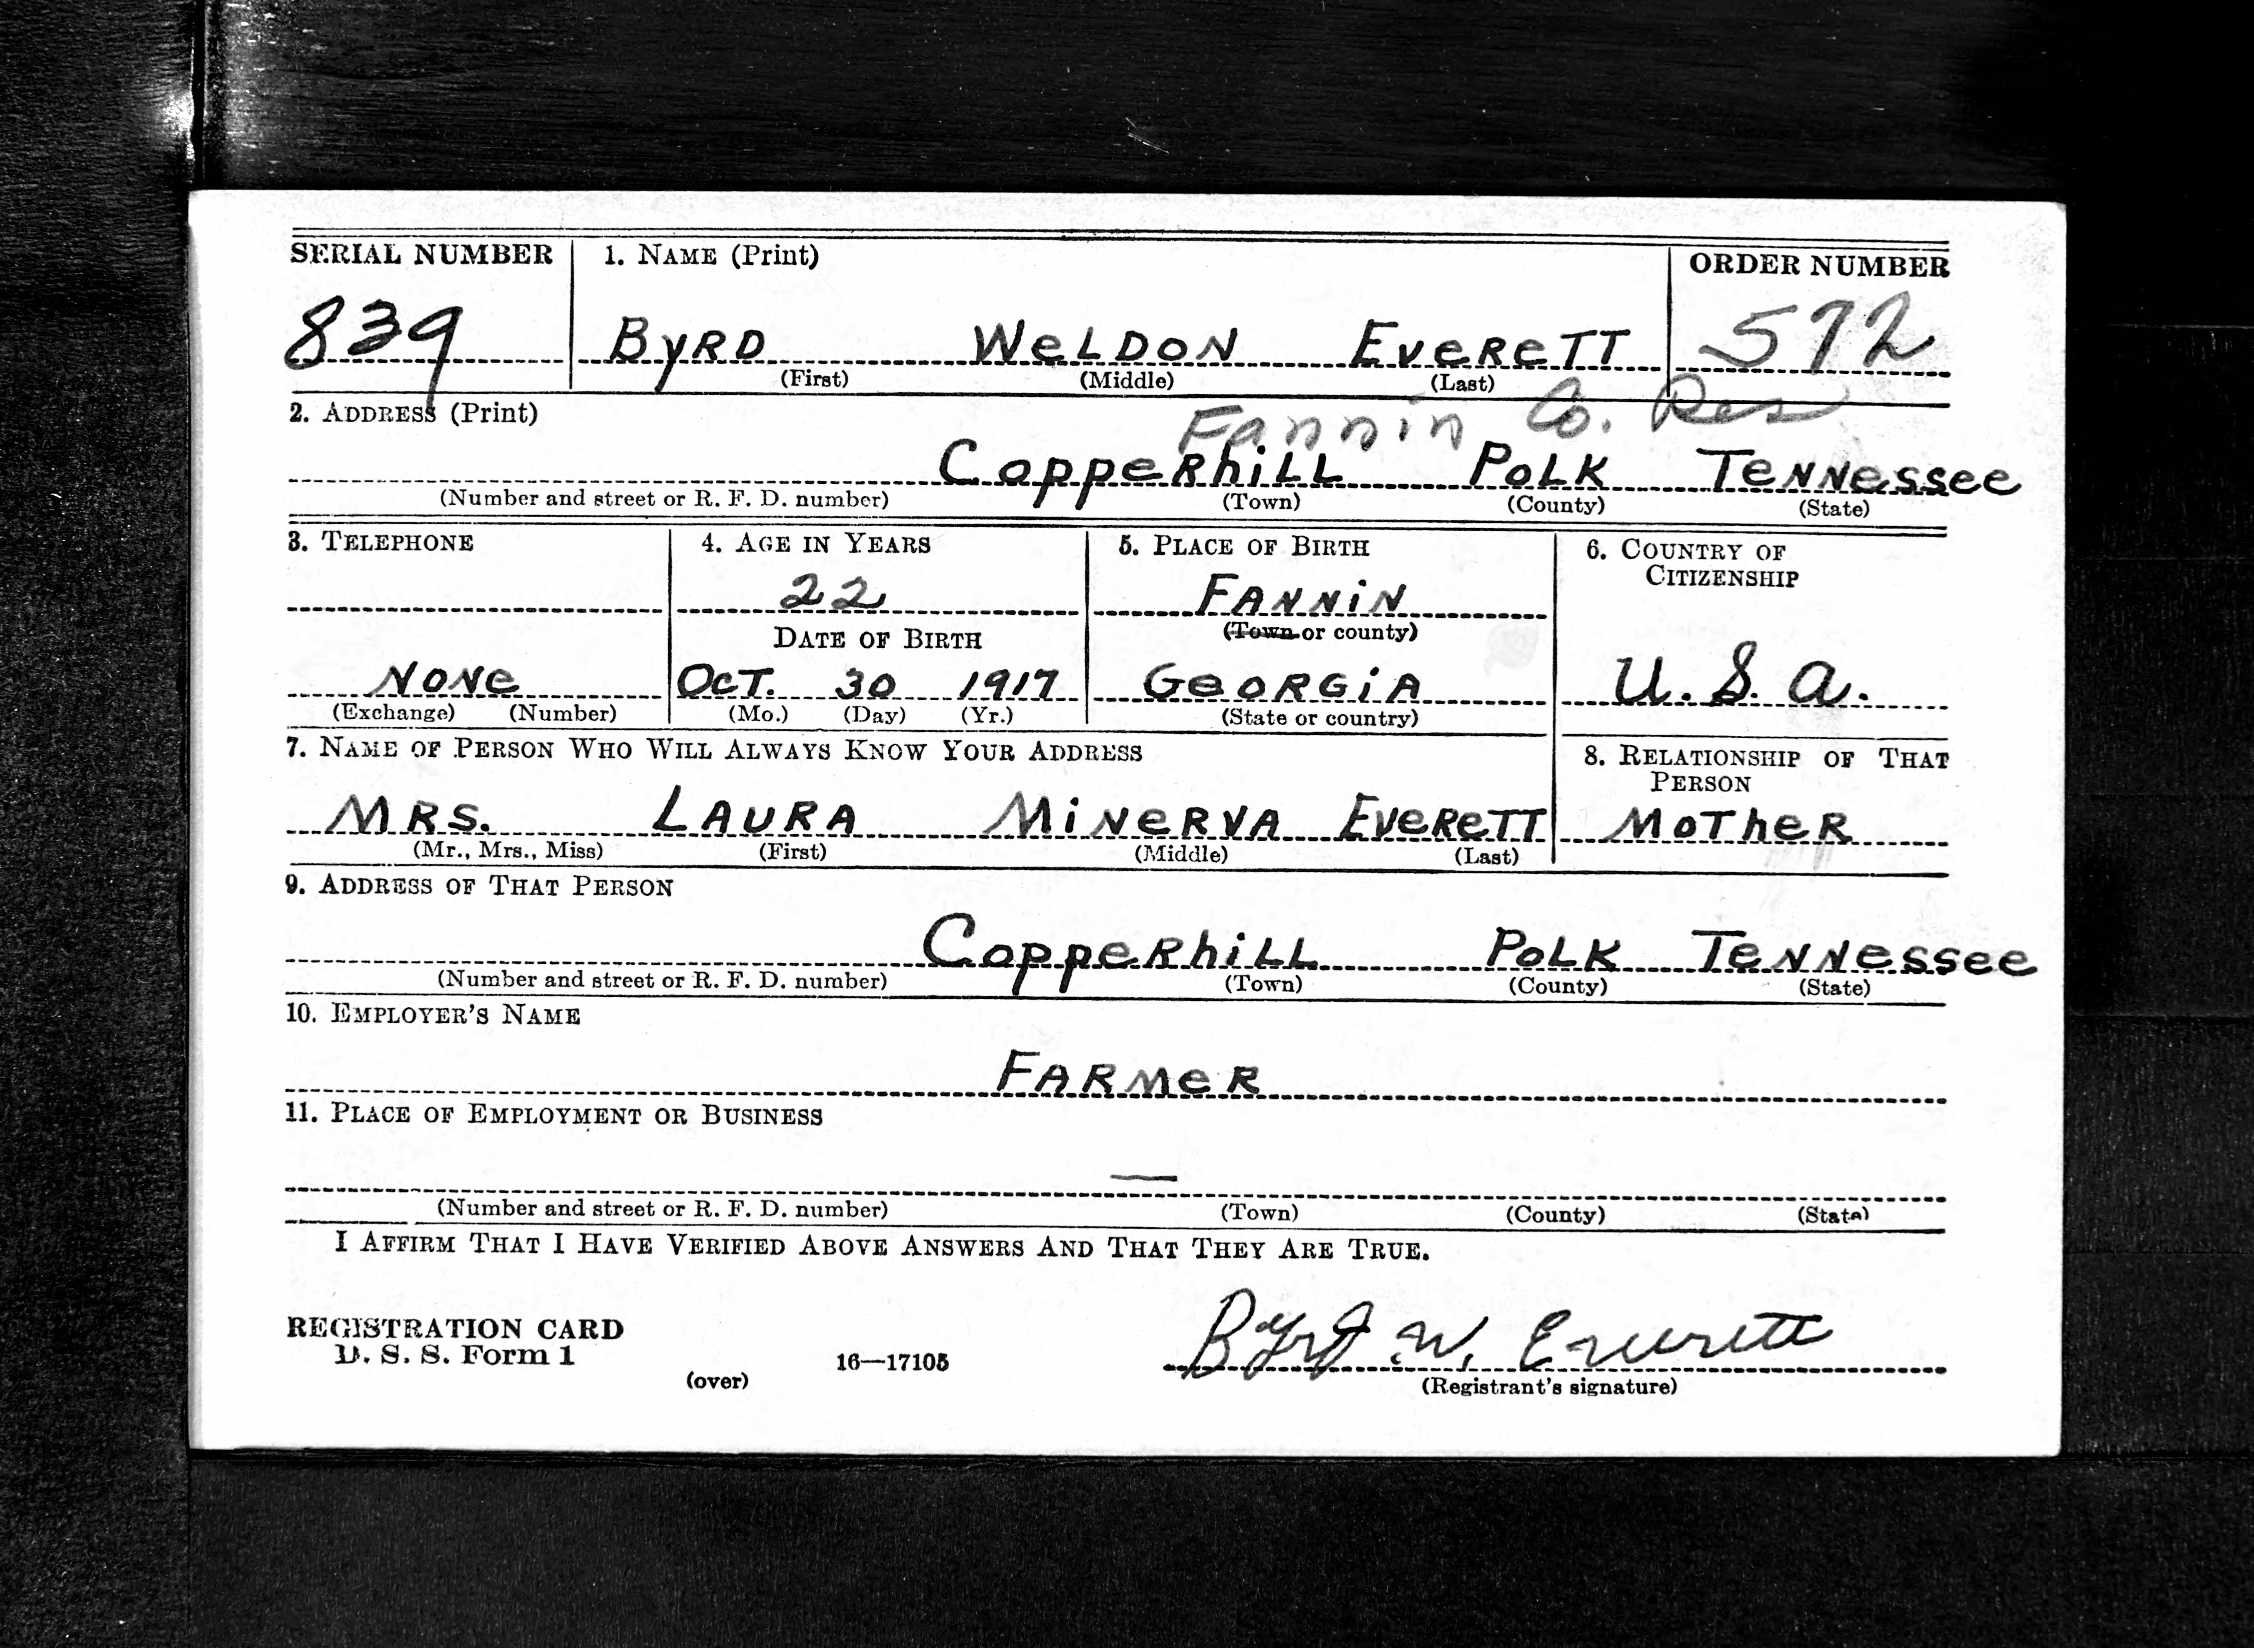 SERIAL NUMBER 1. NAME (Print) ORDER NUMBER
839 BYRD WELDON EVERETT 572
(First) (Middle) (Last)
2. ADDRESS (Print) Fannin Co. Res
Copperhill Polk Tennessee
(Number and street or R. F. D. number) (Town) (County) (State)
3. TELEPHONE 4. AGE IN YEARS 5. PLACE OF BIRTH 6. COUNTRY OF
CITIZENSHIP
22 FANNIN
DATE OF BIRTH (Town or county)
NONE OCT. 30 1917 GEORGIA U. S. A.
(Exchange) (Number) (Mo.) (Day) (Yr.) (State or country)
7. NAME OF PERSON WHO WILL ALWAYS KNOW YOUR ADDRESS 8. RELATIONSHIP OF THAT
PERSON
MRS. LAURA MINERVA EVERETT MOTHER
(Mr., Mrs., Miss) (First) (Middle) (Last)
9. ADDRESS OF THAT PERSON
Copperhill Polk Tennessee
(Number and street or R. F. D. number) (Town) (County) (State)
10. EMPLOYER'S NAME
FARMER
11. PLACE OF EMPLOYMENT OR BUSINESS
—
(Number and street or R. F. D. number) (Town) (County) (State)
I AFFIRM THAT I HAVE VERIFIED ABOVE ANSWERS AND THAT THEY ARE TRUE.
REGISTRATION CARD
D. S. S. Form 1 16—17105 Byrd W. Everett
(over) (Registrant's signature)